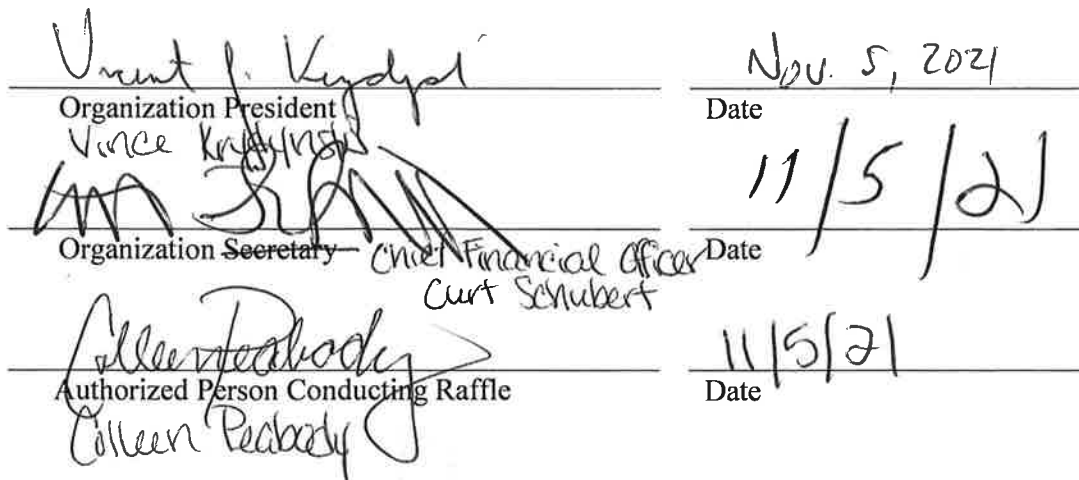 Nov. 5, 2021
Organization President Date
Vince
11/5/21
Organization Secretary Chief Financial Officer Date
Curt Schubert
Colleen Peabody 11/5/21
Authorized Person Conducting Raffle Date
Colleen Peabody